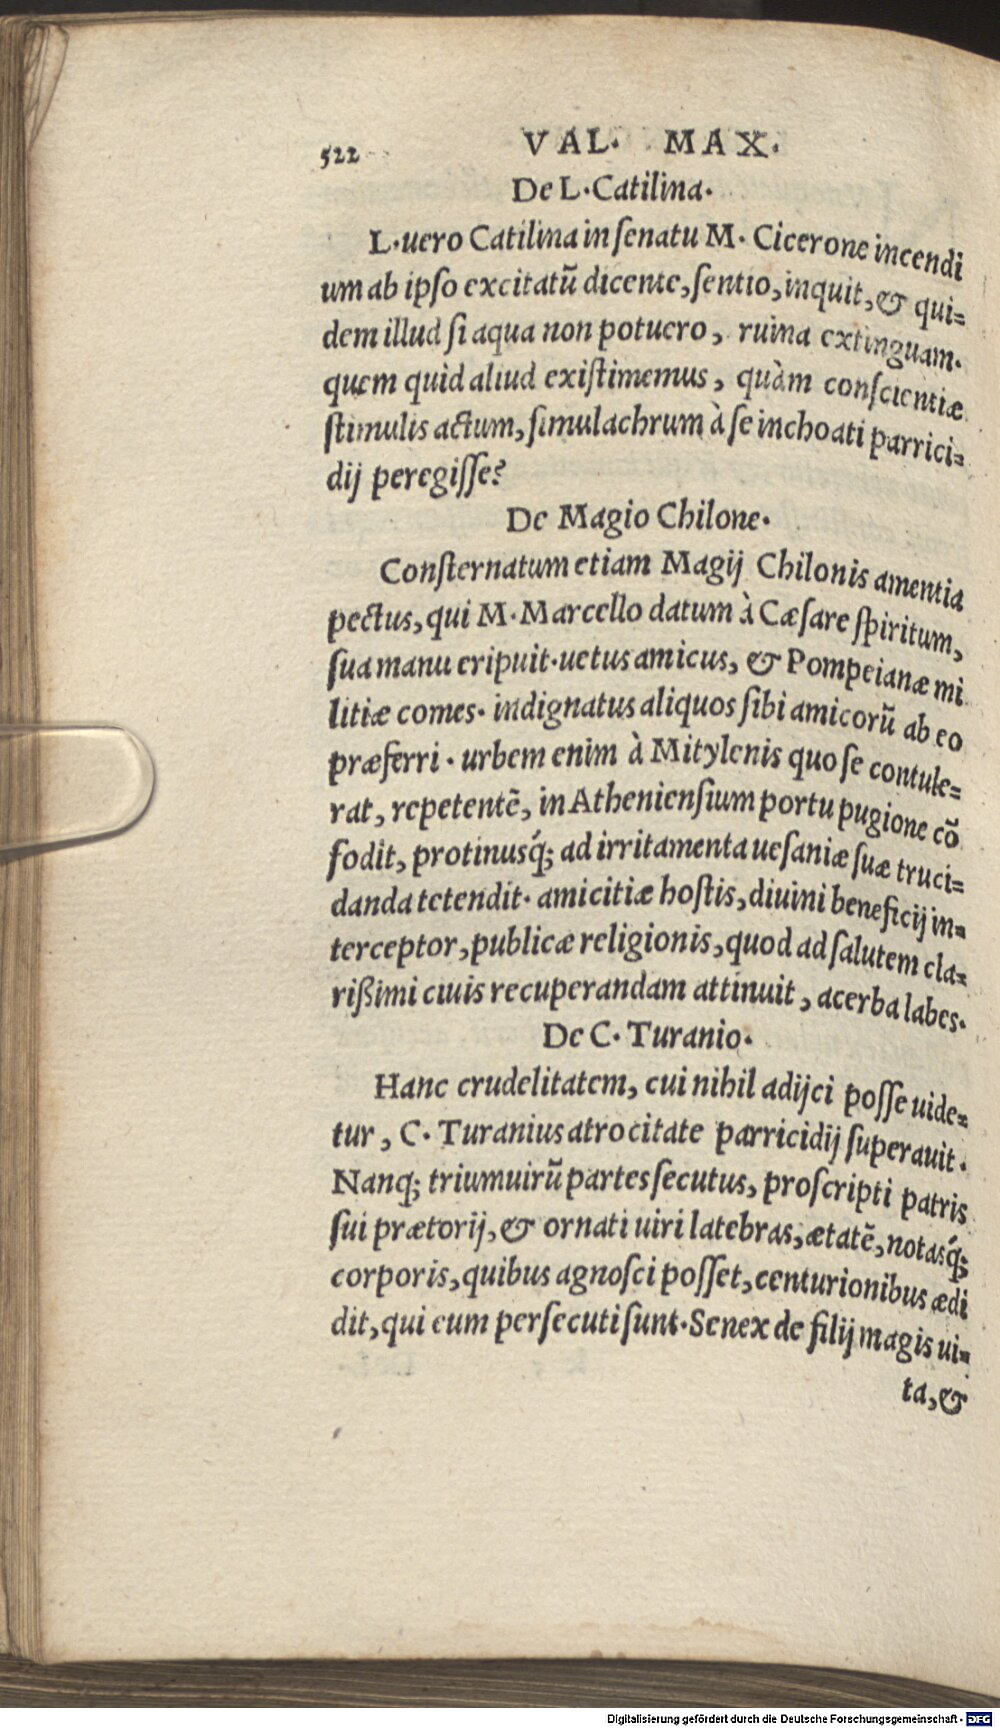 522 VAL. MAX.
De L. Catilina.
L. uero Catilina in ſenatu M. Cicerone incendi
um ab ipſo excitatũ dicente, ſentio, inquit, & qui=
dem illud ſi aqua non potuero, ruina extinguam.
quem quid aliud exiſtimemus, quàm conſcientiæ
ſtimulis actum, ſimulachrum à ſe inchoati parrici=
dij peregiſſe?
De Magio Chilone.
Conſternatum etiam Magij Chilonis amentia
pectus, qui M. Marcello datum à Cæſare ſpiritum,
ſua manu eripuit. uetus amicus, & Pompeianæ mi
litiæ comes. indignatus aliquos ſibi amicorũ ab eo
præferri. urbem enim à Mitylenis quo ſe contule=
rat, repetentẽ, in Athenienſium portu pugione cõ
fodit, protinusq́; ad irritamenta ueſaniæ ſuæ truci=
danda tetendit. amicitiæ hoſtis, diuini beneficij in=
terceptor, publicæ religionis, quod ad ſalutem cla=
rißimi ciuis recuperandam attinuit, acerba labes.
De C. Turanio.
Hanc crudelitatem, cui nihil adijci poſſe uide=
tur, C. Turanius atrocitate parricidij ſuperauit.
Nanq; triumuirũ partes ſecutus, proſcripti patris
ſui prætorij, & ornati uiri latebras, ætatẽ, notasq́;
corporis, quibus agnoſci poſſet, centurionibus ædi
dit, qui eum perſecuti ſunt. Senex de filij magis ui=
ta, &
Digitalisierung gefördert durch die Deutsche Forschungsgemeinschaft - DFG